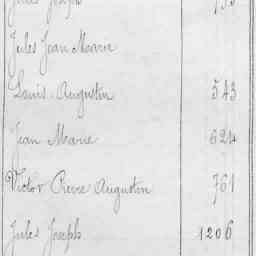 Jules Joseph
Jules Jean Marie
Louis Augustin 543
Jean Marie 624
Victor Pierre Augustin 761
Jules Joseph 1206